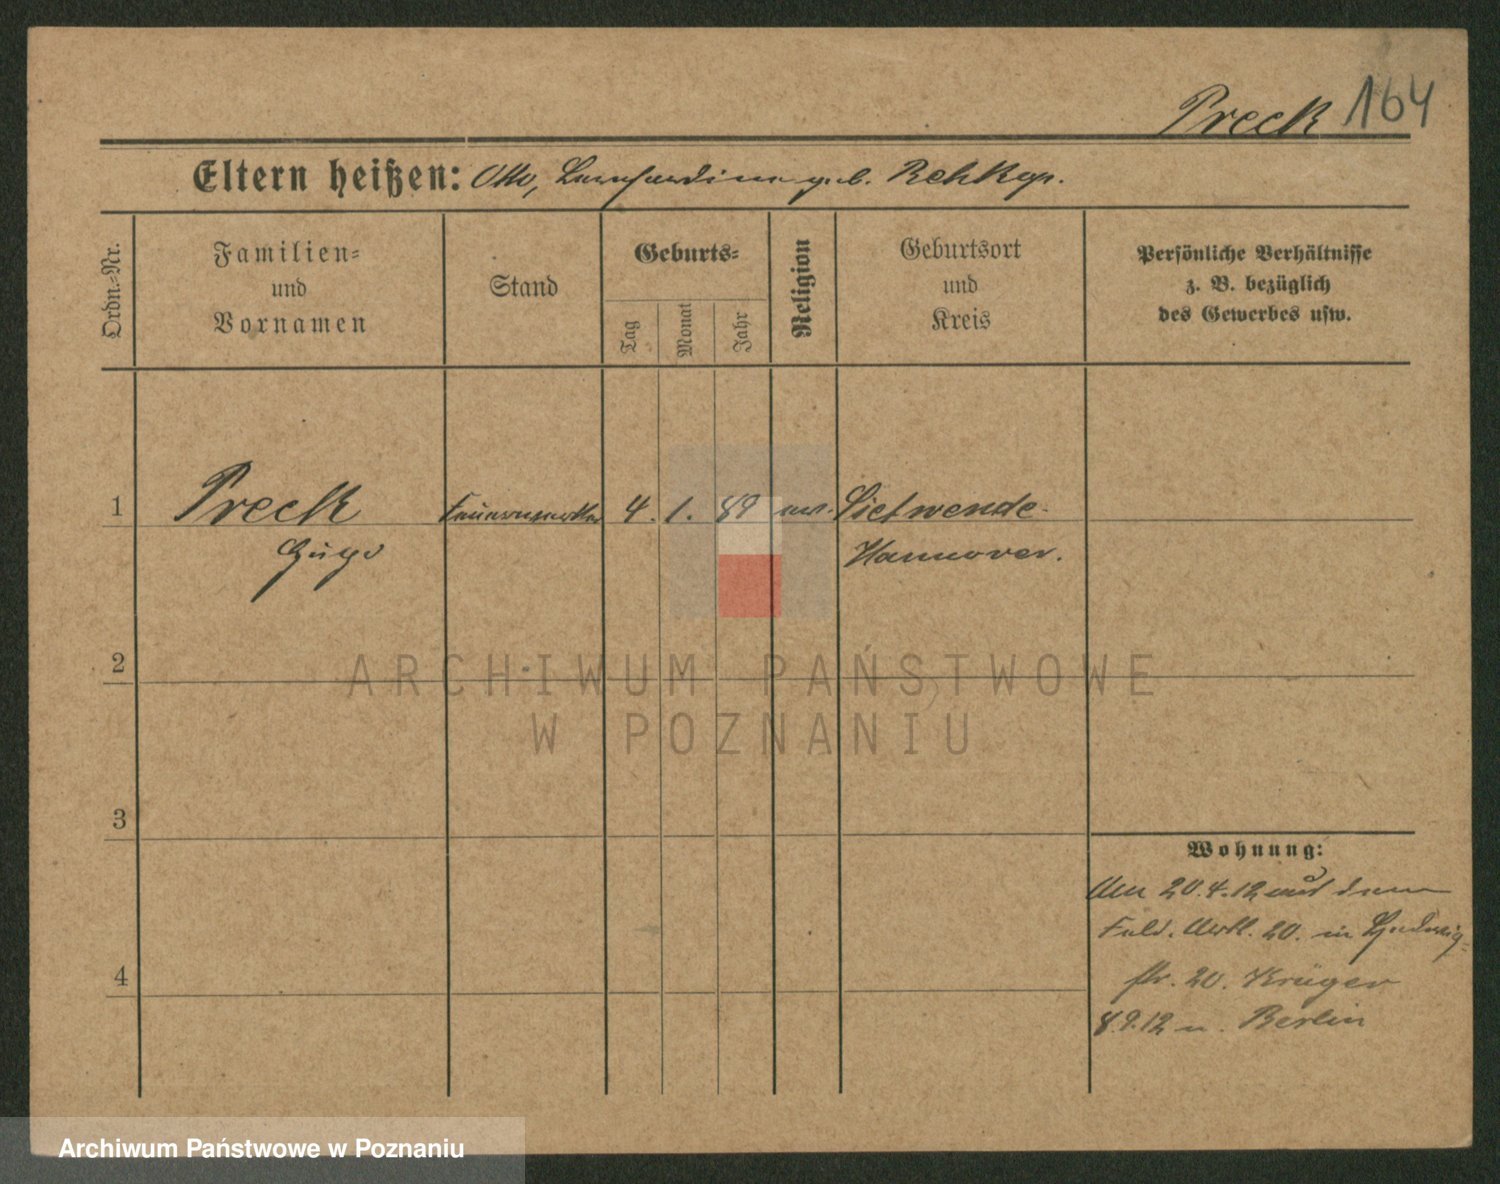 Preck 164
Eltern heißen: Otto, Bernhardine geb. Rehkop.
Ordn.-Nr.
Familien=
und
Vornamen
Stand
Geburts=
Tag
Monat
Jahr
Religion
Geburtsort
und
Kreis
Persönliche Verhältnisse
z. B. bezüglich
des Gewerbes usw.
1 Preck Feuerwerker 4. 1. 89 ev. Sietwende
Hugo Hannover.
2
3
4
Wohnung:
Am 20.4.12 auf dem
Feld. Artl. 20. in
str. 20. Krüger
8.9.12 n. Berlin
ARCHIWUM PAŃSTWOWE
W POZNANIU
Archiwum Państwowe w Poznaniu